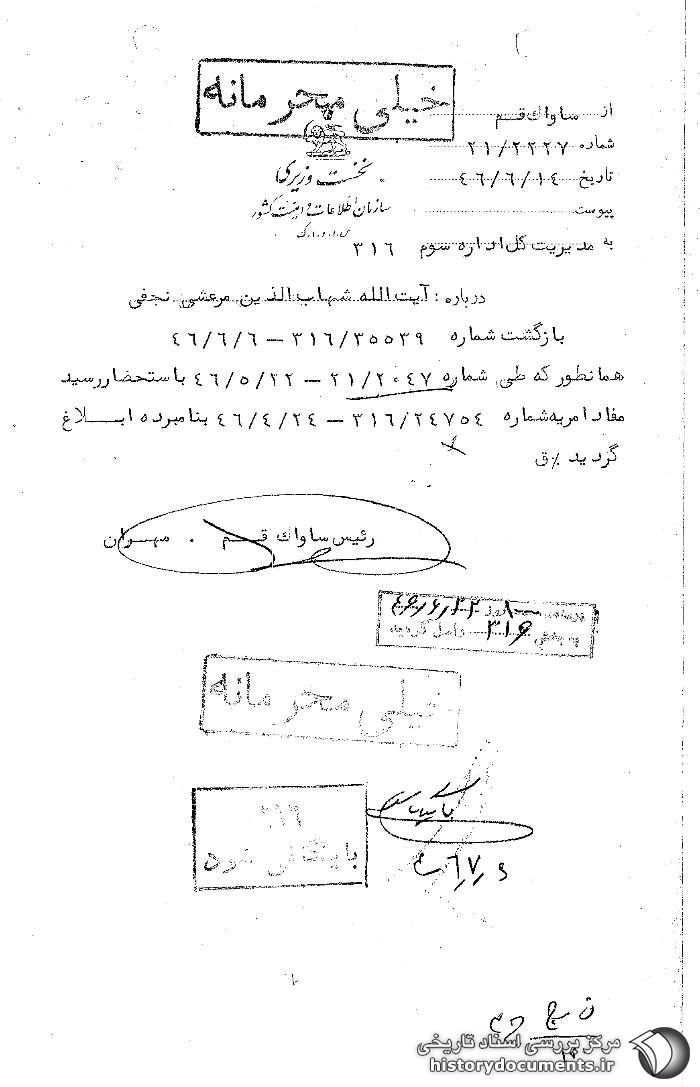 خیلی محرمانه
از ساواك قم
شماره ۲۱/۲۲۲۷
نخست وزیری
تاریخ ۴٦/٦/۱۴
سازمان اطلاعات و امنیت کشور
س.ا.و.ا.ک
پیوست
به مدیریت کل اداره سوم ۳۱٦
درباره : آیت الله شهاب الذین مرعشی نجفی
بازگشت شماره ۳۱٦/۳۵۵۳۹ – ۴٦/٦/٦
همانطور که طی شماره ۲۱/۲۰۴۷ – ۴٦/۵/۲۲ باستحضار رسید
مفاد امریه شماره ۳۱٦/۲۴۷۵۴ – ۴٦/۴/۲۴ بنامبرده ابـلاغ
گردید ٪ ق
رئیس ساواك قـم . مهـران
۴۶/۶/۲۲
به بخش ۳۱۶ واصل گردید
خیلی محرمانه
۳۱٦
بایگانی شود
مرکز بررسی اسناد تاریخی
historydocuments.ir